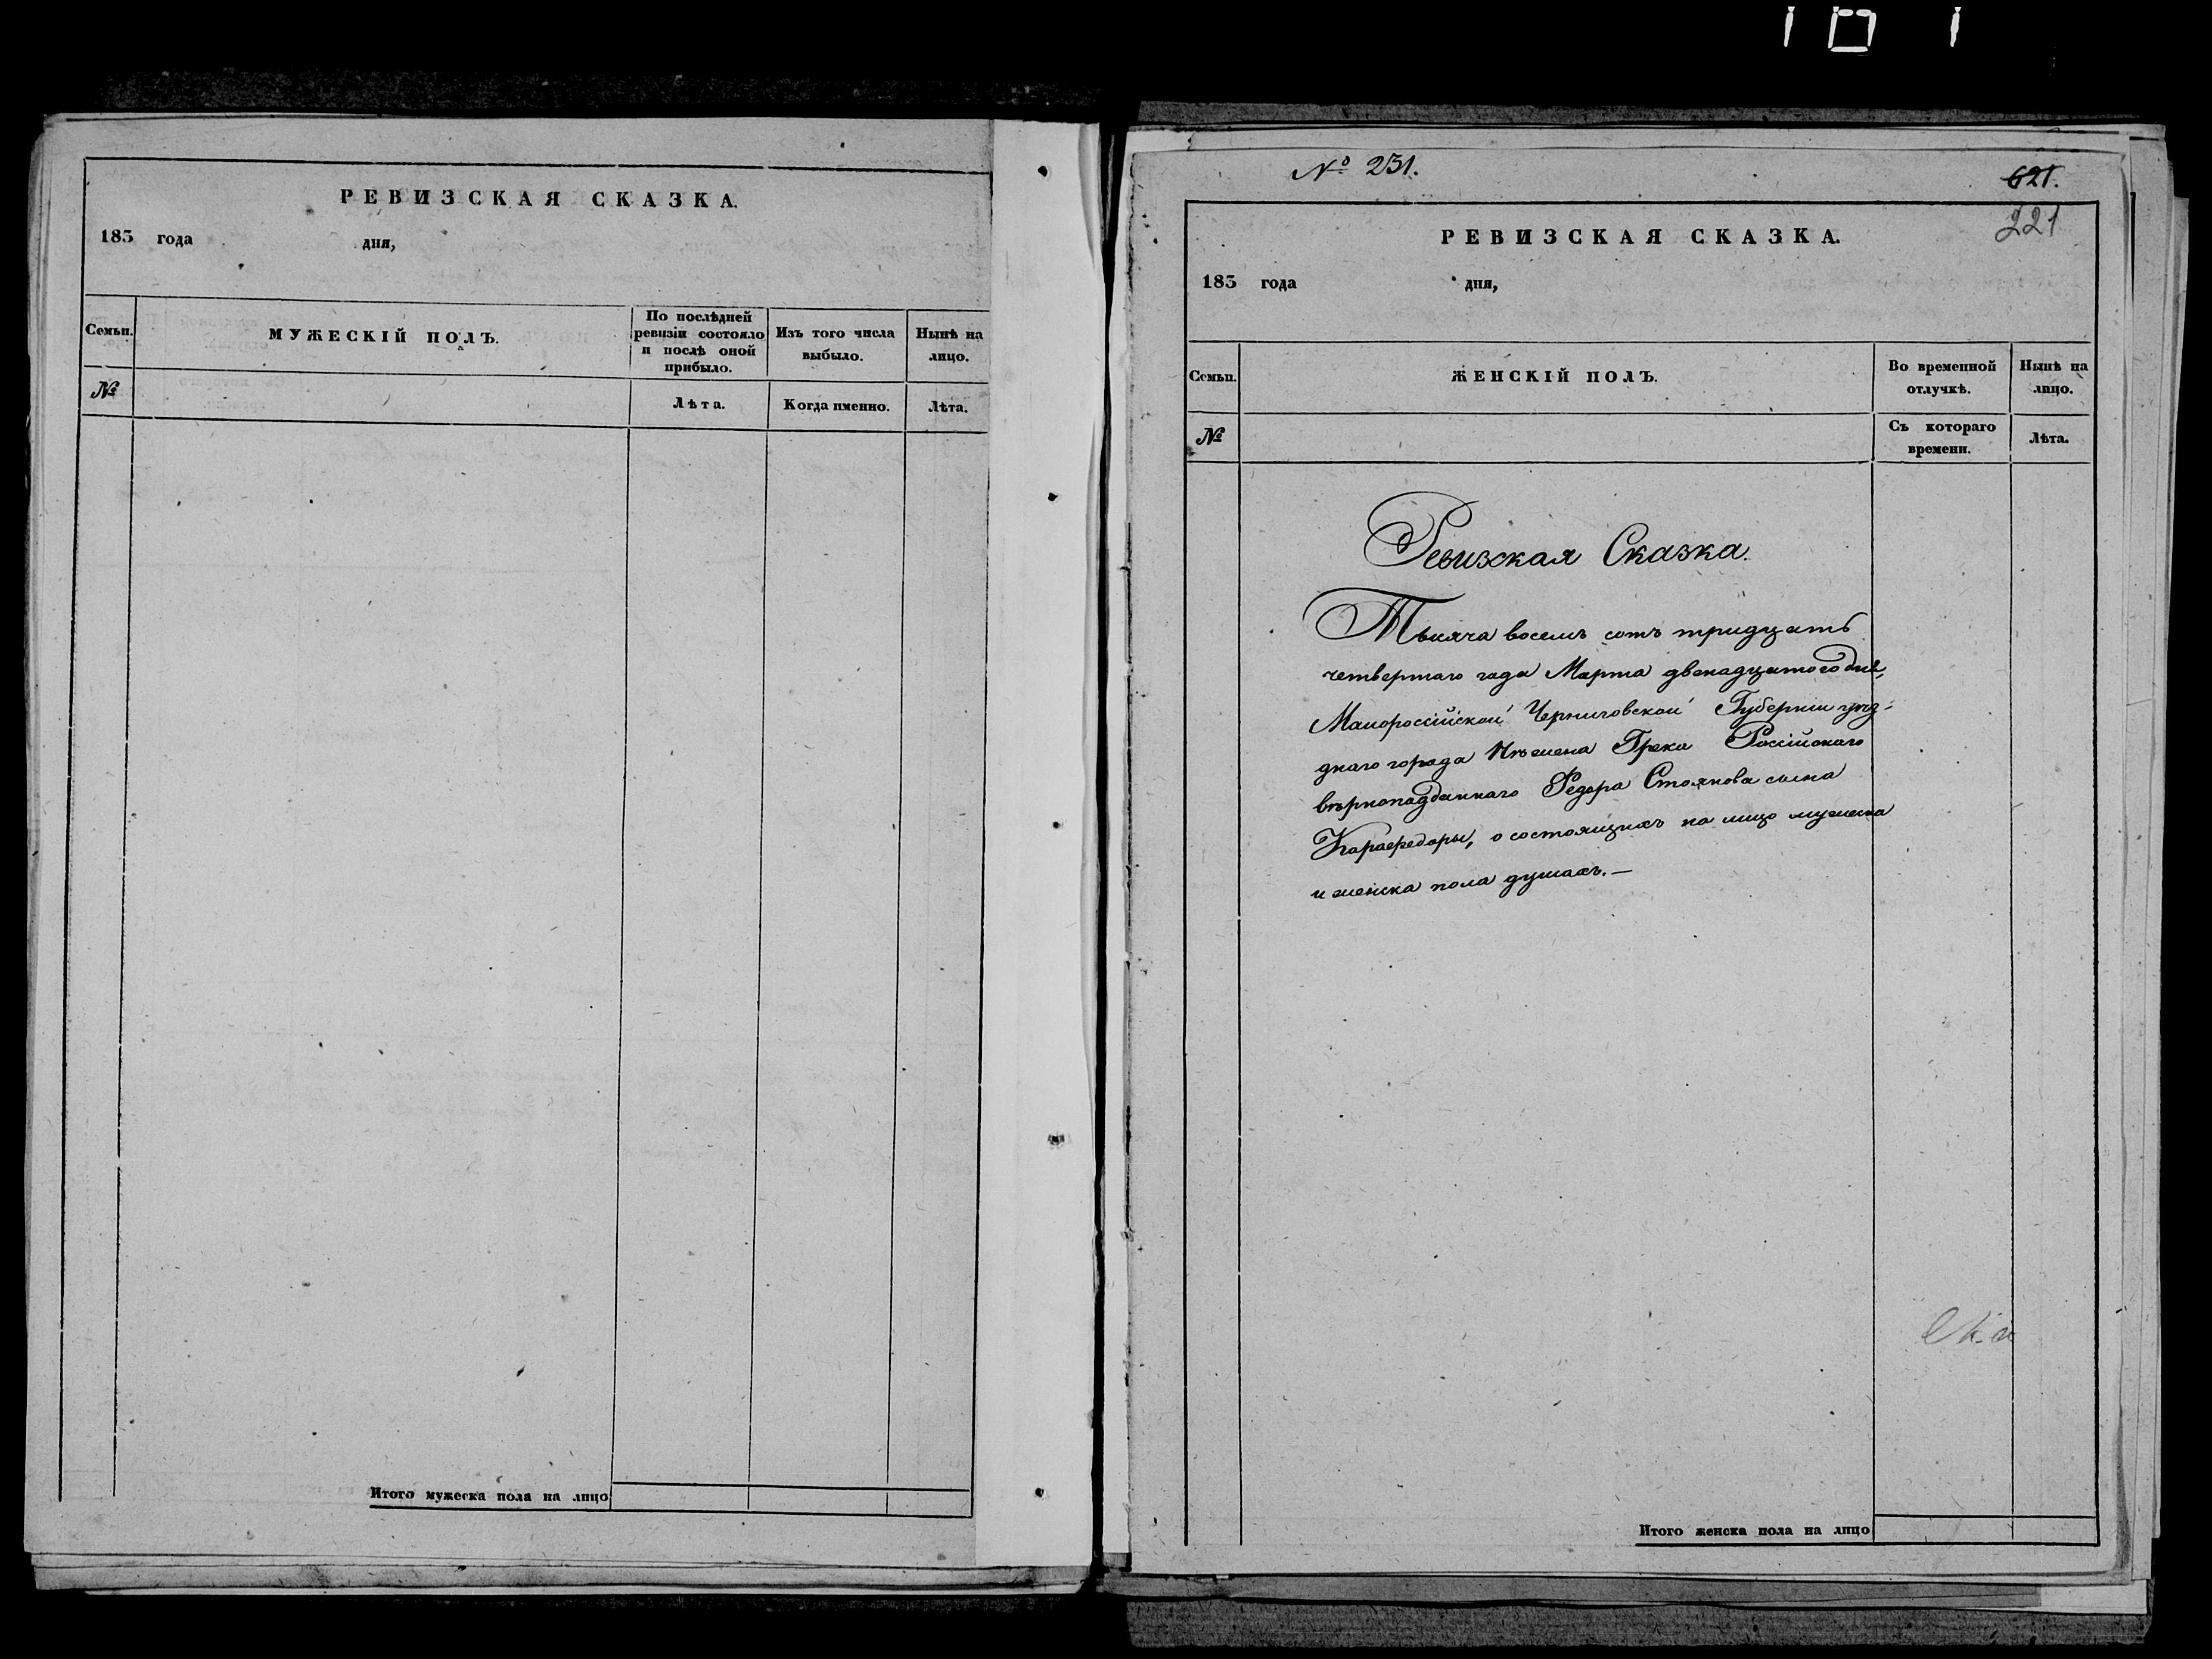 РЕВИЗСКАЯ СКАЗКА.
183 года дня,
Семьи.
МУЖЕСКІЙ ПОЛЪ.
По послѣдней ревизіи состояло и послѣ оной прибыло.
Изъ того числа выбыло.
Нынѣ на лицо.
№
Лѣта.
Когда именно.
Лѣта.
Итого мужеска пола на лицо
№ 231.
621.
221
РЕВИЗСКАЯ СКАЗКА.
183 года дня,
Семьи.
ЖЕНСКІЙ ПОЛЪ.
Во временной отлучкѣ.
Нынѣ на лицо.
№
Съ котораго времени.
Лѣта.
Ревизская Сказка.
Тысяча восемъ сотъ тридцать
четвертаго года Марта двенадцатого дня,
Малороссійской Черниговской Губерніи уѣз-
днаго города Нѣжена Грека Россійскаго
вѣрноподданнаго Федора Стоянова сына
Карафедоры, о состоящихъ на лицо мужеска
и женска пола душахъ.—
Итого женска пола на лицо